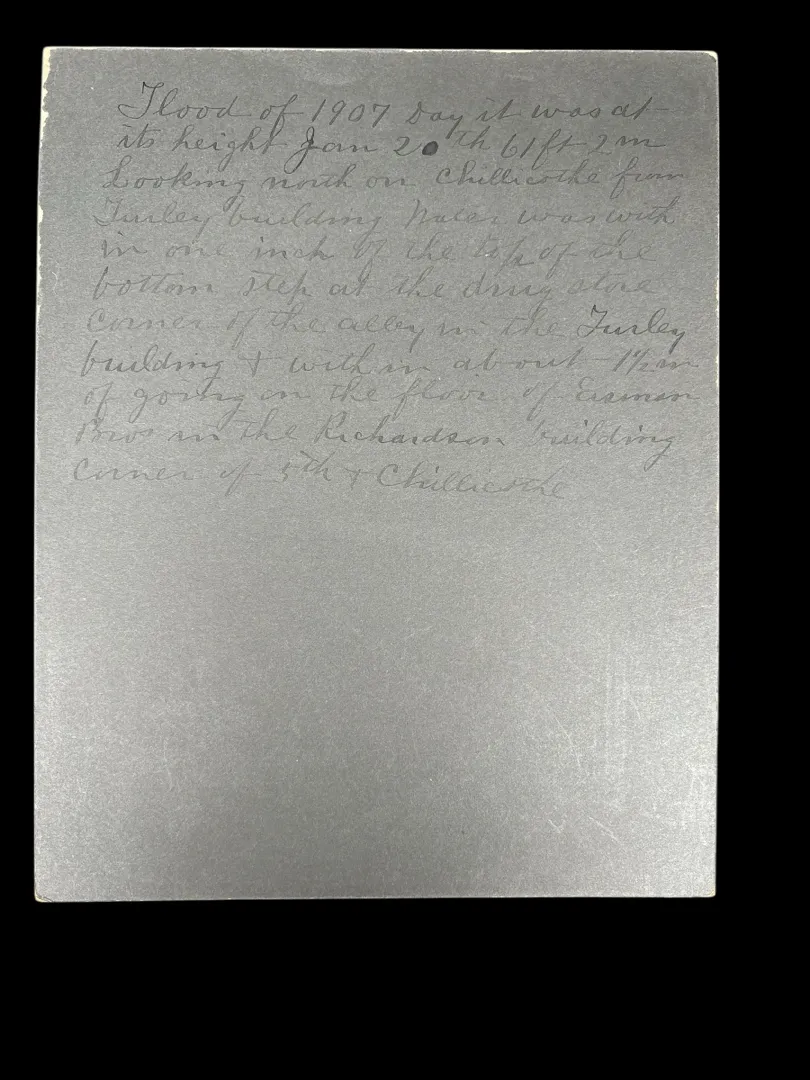 Flood of 1907 Day it was at
its height Jan 20th 61 ft 2 in
Looking north on Chillicothe from
Turley building Water was with
in one inch of the top of the
bottom step at the drug store
corner of the alley in the Turley
building & with in about 1½ in
of going on the floor of Eisman
Bros in the Richardson building
corner of 5th & Chillicothe